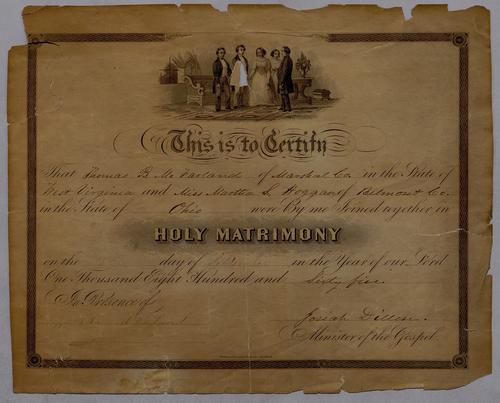 This is to Certify
That Thomas B. McFarland of Marshal Co. in the State of
West Virginia and Miss Martha S. Hoggan of Belmont Co.
in the State of Ohio were By me Joined together in
HOLY MATRIMONY
on the day of in the Year of our Lord
One Thousand Eight Hundred and Sixty five.
In Presence of
Josiah Dillon.
Minister of the Gospel